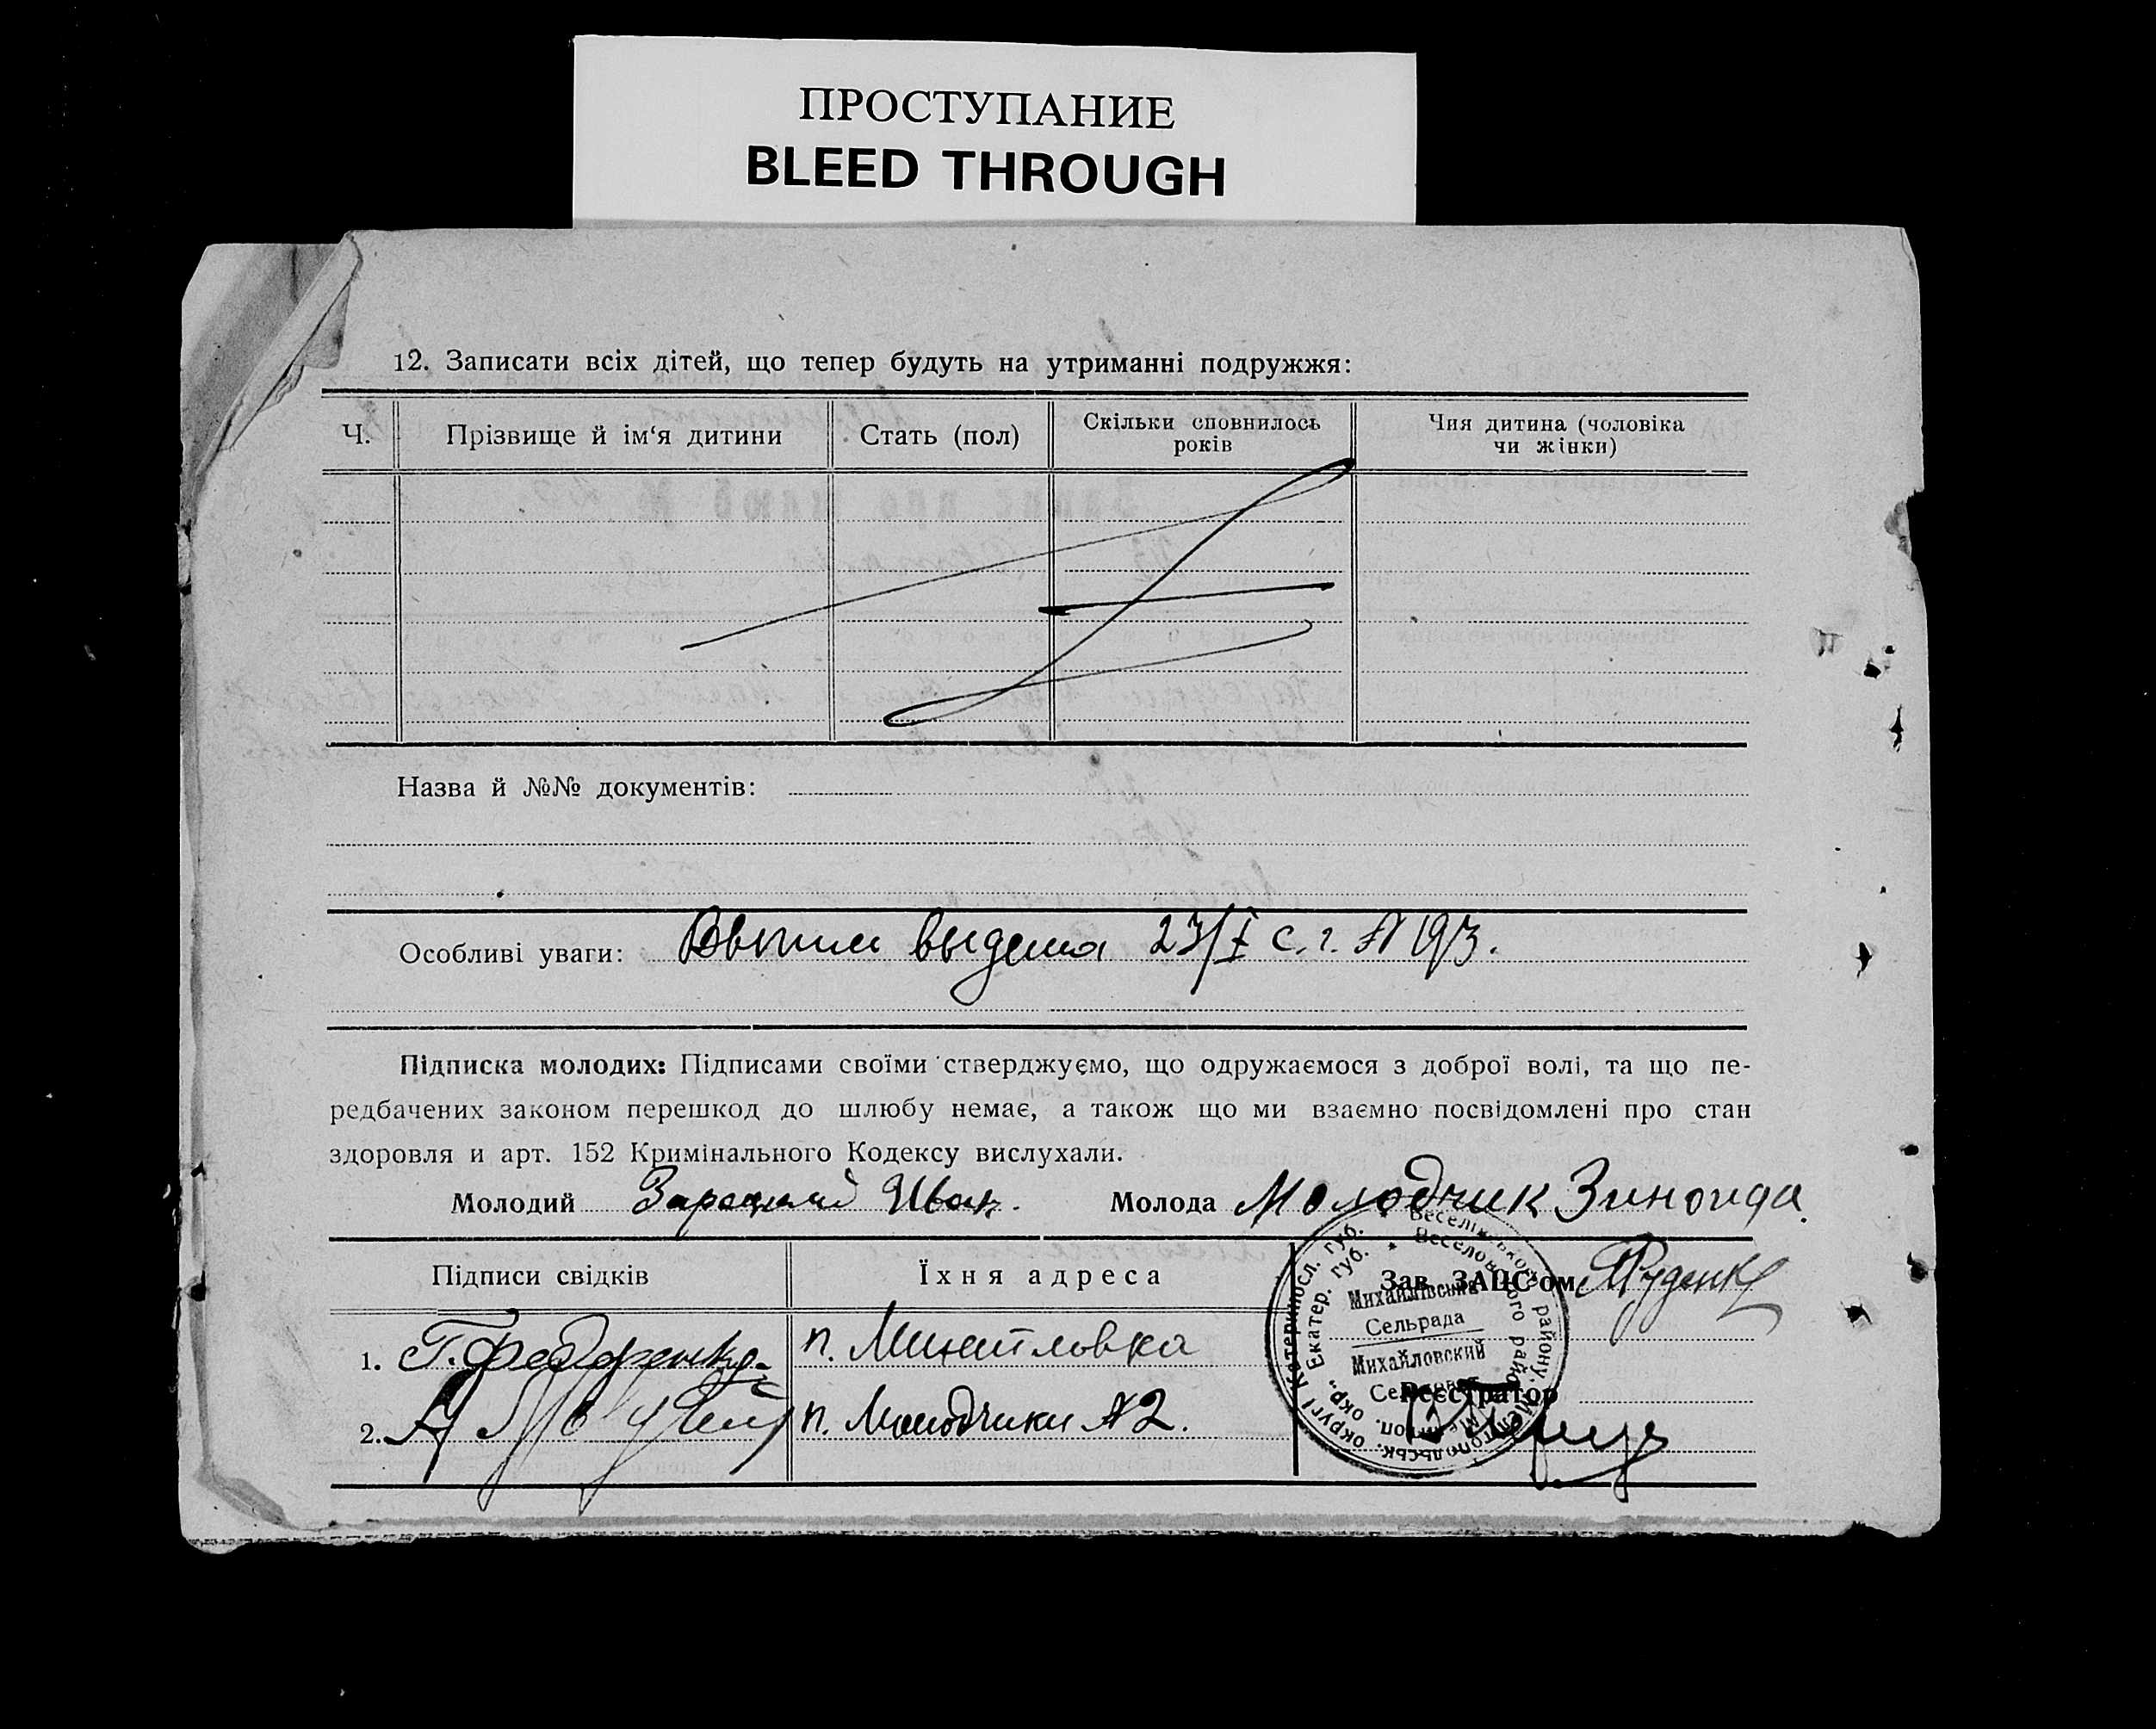 ПРОСТУПАНИЕ
BLEED THROUGH
12. Записати всіх дітей, що тепер будуть на утриманні подружжя:
Ч.
Прізвище й ім‘я дитини
Стать (пол)
Скільки сповнилось
років
Чия дитина (чоловіка
чи жінки)
Назва й №№ документів:
Особливі уваги: выдана 23/I с. г. № 193.
Підписка молодих: Підписами своїми стверджуємо, що одружаємося з доброї волі, та що пе-
редбачених законом перешкод до шлюбу немає, а також що ми взаємно посвідомлені про стан
здоровля и арт. 152 Кримінального Кодексу вислухали.
Молодий Зарецкий Иван. Молода Молодчик Зиноида
Підписи свідків
Їхня адреса
Зав. ЗАГС‘ом Руденко
1. Г. Федоренко
п. Михайловка
2.
п. Молодчики №2.
Реєстратор
Михайлівська
Сельрада
Михайловский